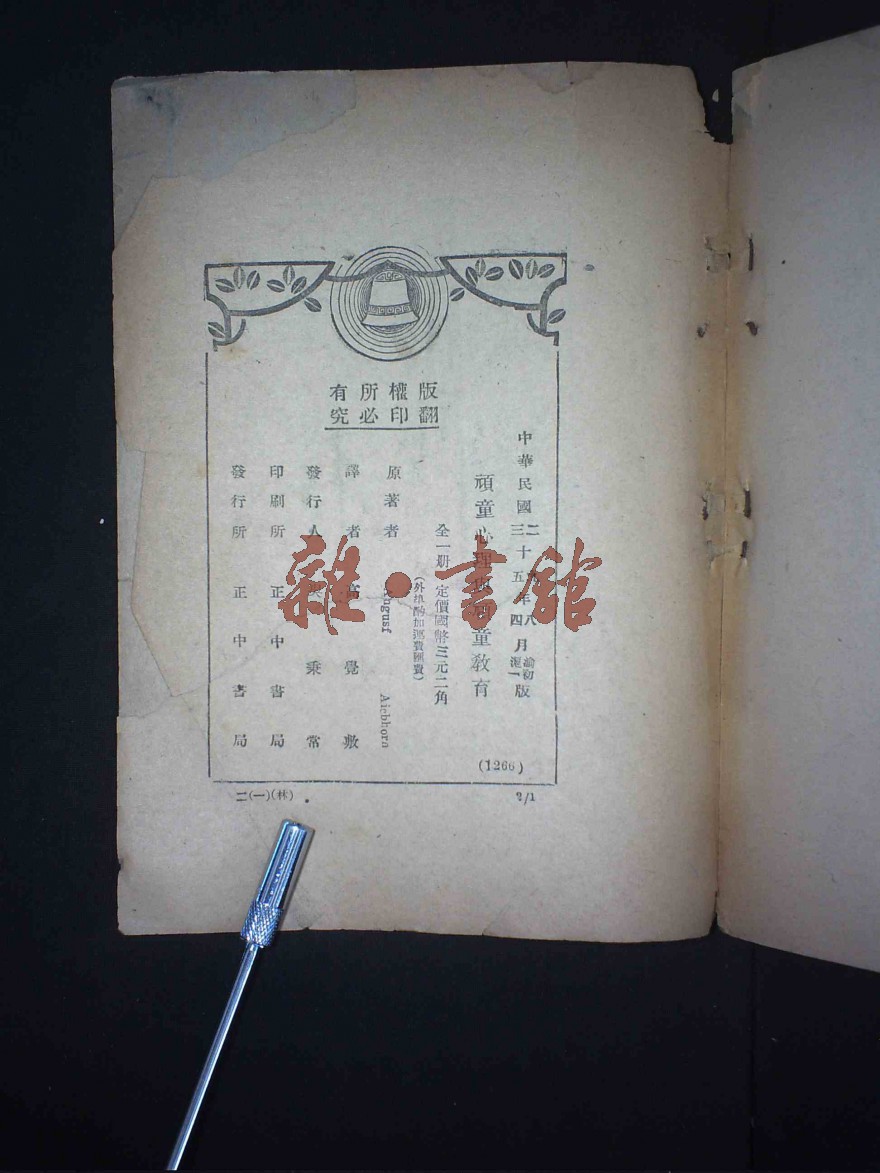 版權所有
翻印必究
中華民國
三十五年四月
版
頑童心理與頑童教育
全一册 定價國幣三元二角
(外埠酌加運費匯費)
原著者 August Aichhorn
譯者 高覺敷
發行人 乘常
印刷所 正中書局
發行所 正中書局
(1266)
二(一)(林)
2/1
雜·書館